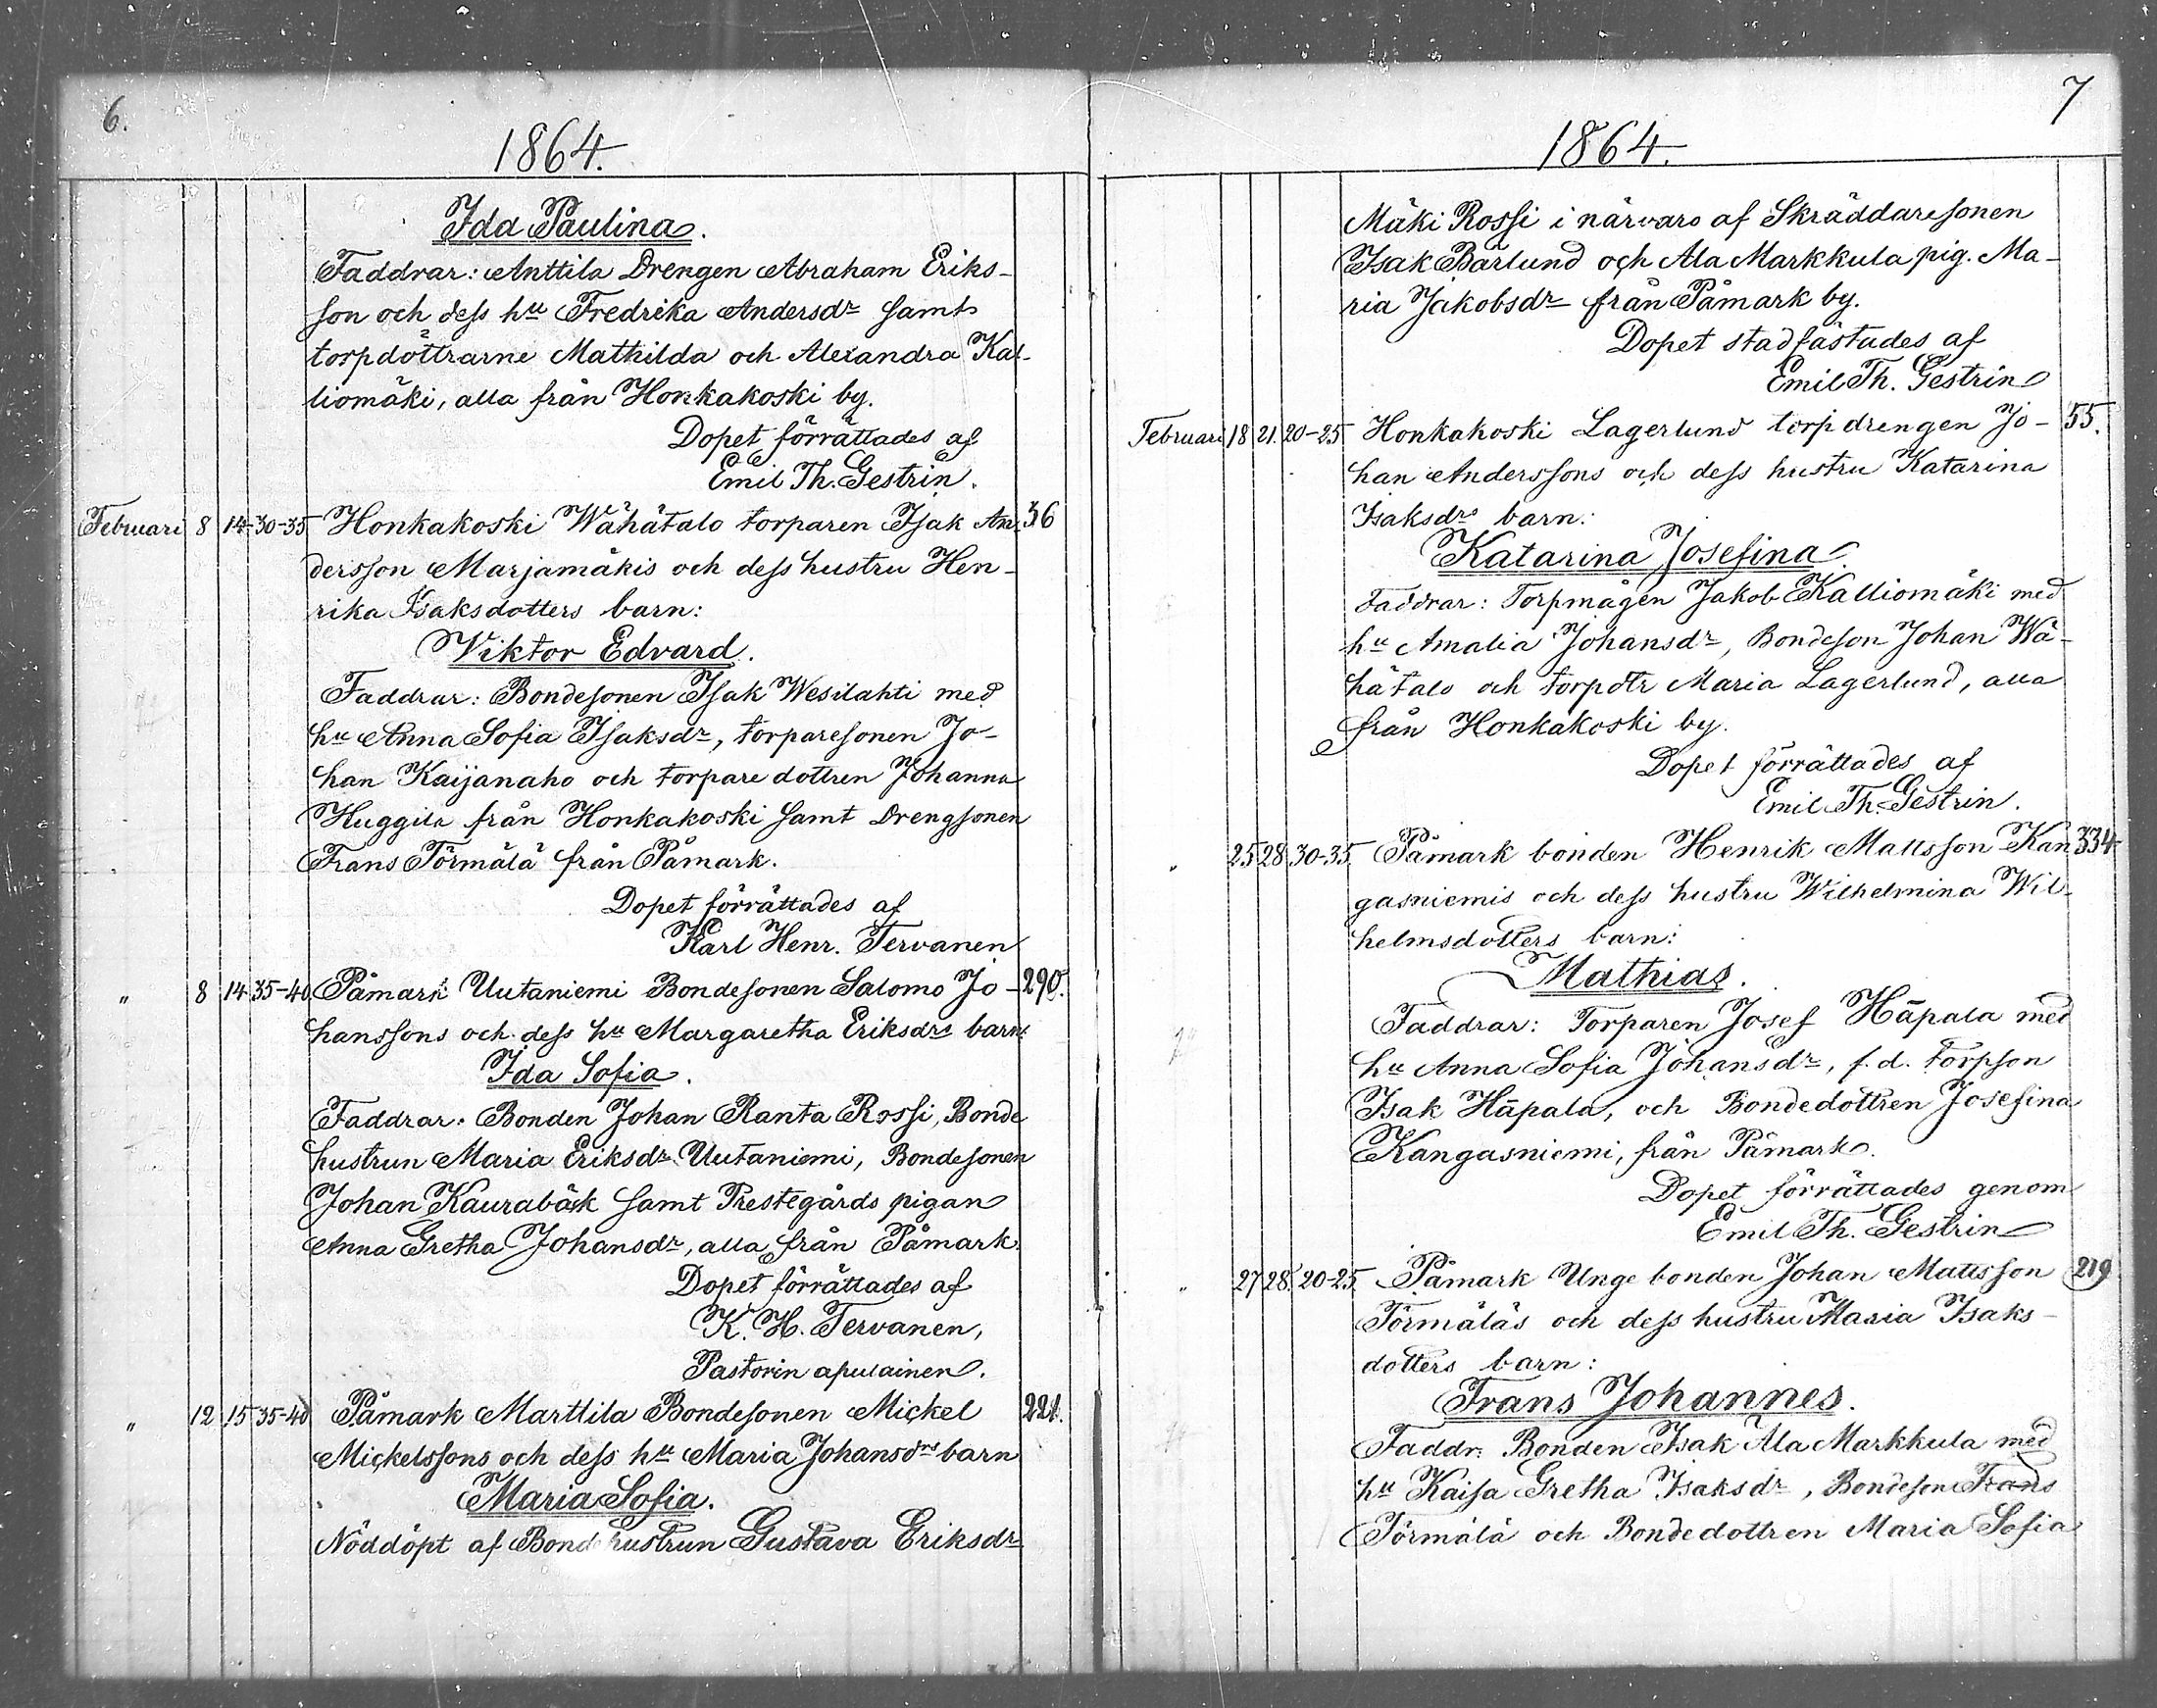 6.
1864.
Ida Paulina.
Faddrar: Anttila Drengen Abraham Eriks-
son och dess hu Fredrika Andersdr samt
torpdöttrarne Mathilda och Alexandra Kal-
liomäki, alla från Honkakoski by.
Dopet förrättades af
Emil Th. Gestrin.
Februari 8 14 30-35 Honkakoski Wähätalo torparen Isak An- 36
dersson Marjamäkis och dess hustru Hen-
rika Isaksdotters barn:
Viktor Edvard.
Faddrar: Bondesonen Isak Wesilahti med
hu Anna Sofia Isaksdr, torparesonen Jo-
han Kaijanaho och torparedottren Johanna
Huggila från Honkakoski samt Drengsonen
Frans Törmälä från Påmark.
Dopet förrättades af
Karl Henr. Tervanen
" 8 14 35-40 Påmark Uutaniemi Bondesonen Salomo Jo- 290.
hanssons och dess hu Margaretha Eriksdrs barn:
Ida Sofia.
Faddrar: Bonden Johan Ranta Rossi, Bonde
hustrun Maria Eriksdr Uutaniemi, Bondesonen
Johan Kaurabäck samt Prestegårds pigan
Anna Gretha Johansdr, alla från Påmark.
Dopet förrättades af
K. H. Tervanen,
Pastorin apulainen.
" 12 15 35-40 Påmark Marttila Bondesonen Mickel 221.
Mickelssons och dess hu Maria Johansdrs barn
Maria Sofia.
Nöddöpt af Bondehustrun Gustava Eriksdr
7
1864.
Mäki Rossi i närvaro af Skräddaresonen
Isak Bärlund och Ala Markkula pig. Ma-
ria Jakobsdr från Påmark by.
Dopet stadfästades af
Emil Th. Gestrin
Februari 18 21. 20-25 Honkakoski Lagerlund torpdrengen Jo- 55.
han Anderssons och dess hustru Katarina
Isaksdrs barn:
Katarina Josefina.
Faddrar: Torpmågen Jakob Kalliomäki med
hu Amalia Johansdr, Bondeson Johan Wä-
hätalo och torpdtr Maria Lagerlund, alla
från Honkakoski by.
Dopet förrättades af
Emil Th. Gestrin.
" 25 28 30-35 Påmark bonden Henrik Mattsson Kan 334
gasniemis och dess hustru Wilhelmina Wil-
helmsdotters barn:
Mathias.
Faddrar: Torparen Josef Häpala med
hu Anna Sofia Johansdr, f.d. torpson
Isak Häpala, och Bondedottren Josefina
Kangasniemi, från Påmark.
Dopet förrättades genom
Emil Th. Gestrin
" 27 28. 20-25. Påmark Unge bonden Johan Mattsson 219
Törmäläs och dess hustru Maria Isaks-
dotters barn:
Frans Johannes.
Faddr: Bonden Isak Ala Markkula med
hu Kaisa Gretha Isaksdr, Bondeson Frans
Törmälä och Bondedottren Maria Sofia